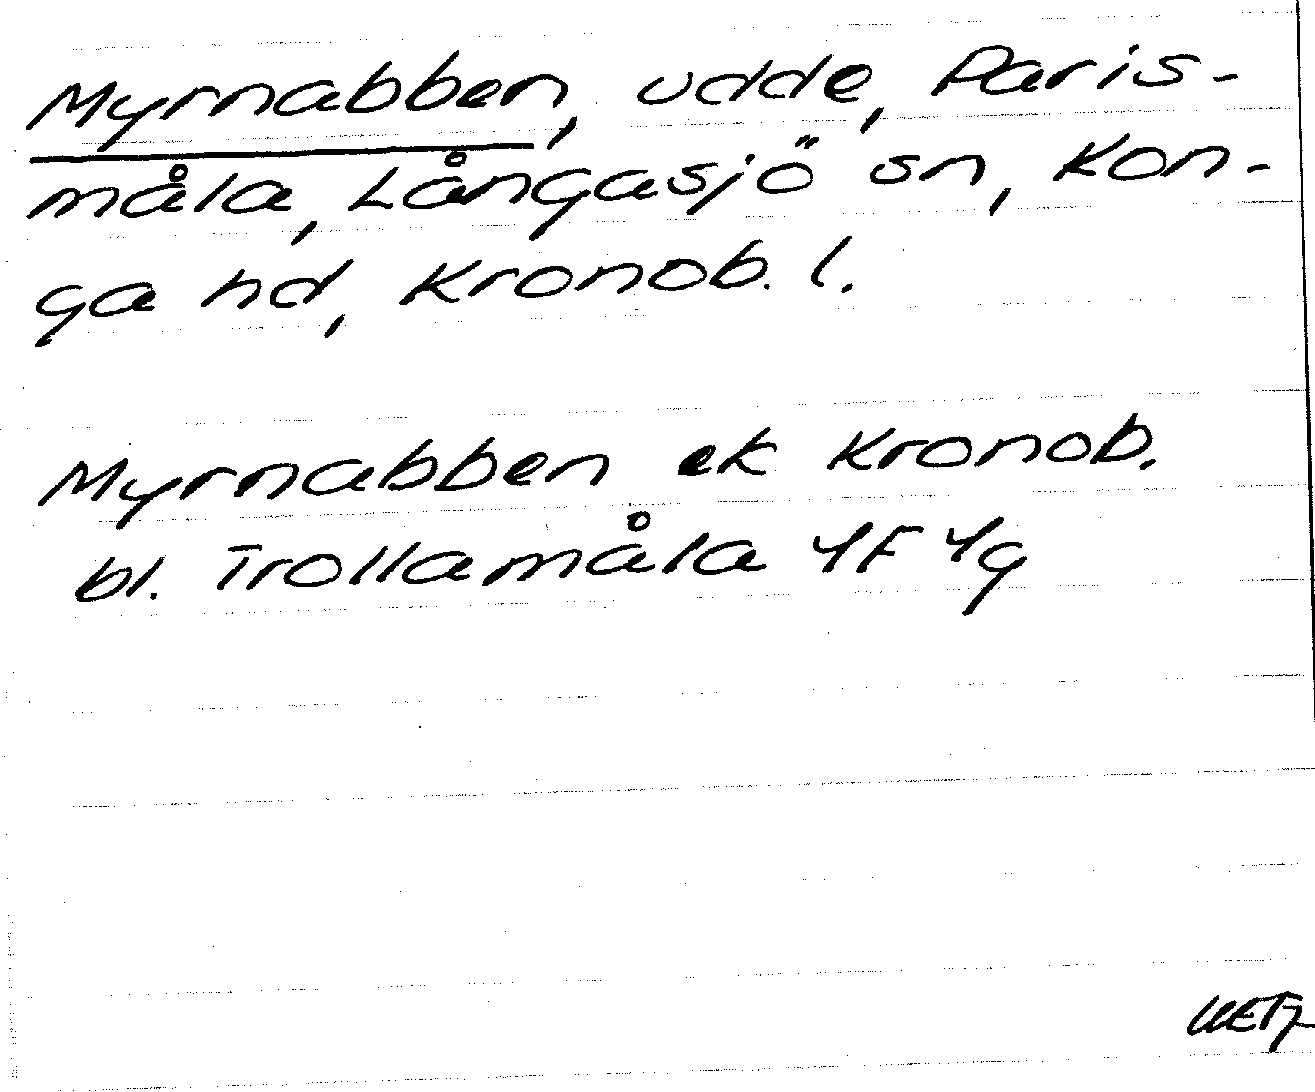 Myrnabben, udde, Paris-
måla, Långasjö sn, Kon-
ga hd, Kronob. l.
Myrnabben ek Kronob.
bl. Trollamåla 4F 4g